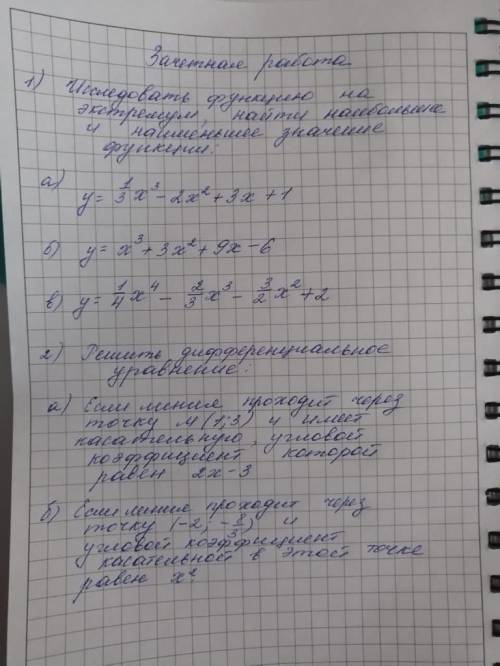 Зачетная работа
1) Исследовать функцию на
экстремум, найти наибольшее
и наименьшее значение
функции:
а) y = 1/3 x³ - 2x² + 3x + 1
б) y = x³ + 3x² + 9x - 6
в) y = 1/4 x⁴ - 2/3 x³ - 3/2 x² + 2
2) Решить дифференциальное
уравнение:
а) Если линия проходит через
точку М (1; 3) и имеет
касательную, угловой
коэффициент которой
равен 2x - 3
б) Если линия проходит через
точку (-2; -8/3) и
угловой коэффициент
касательной в этой точке
равен x²